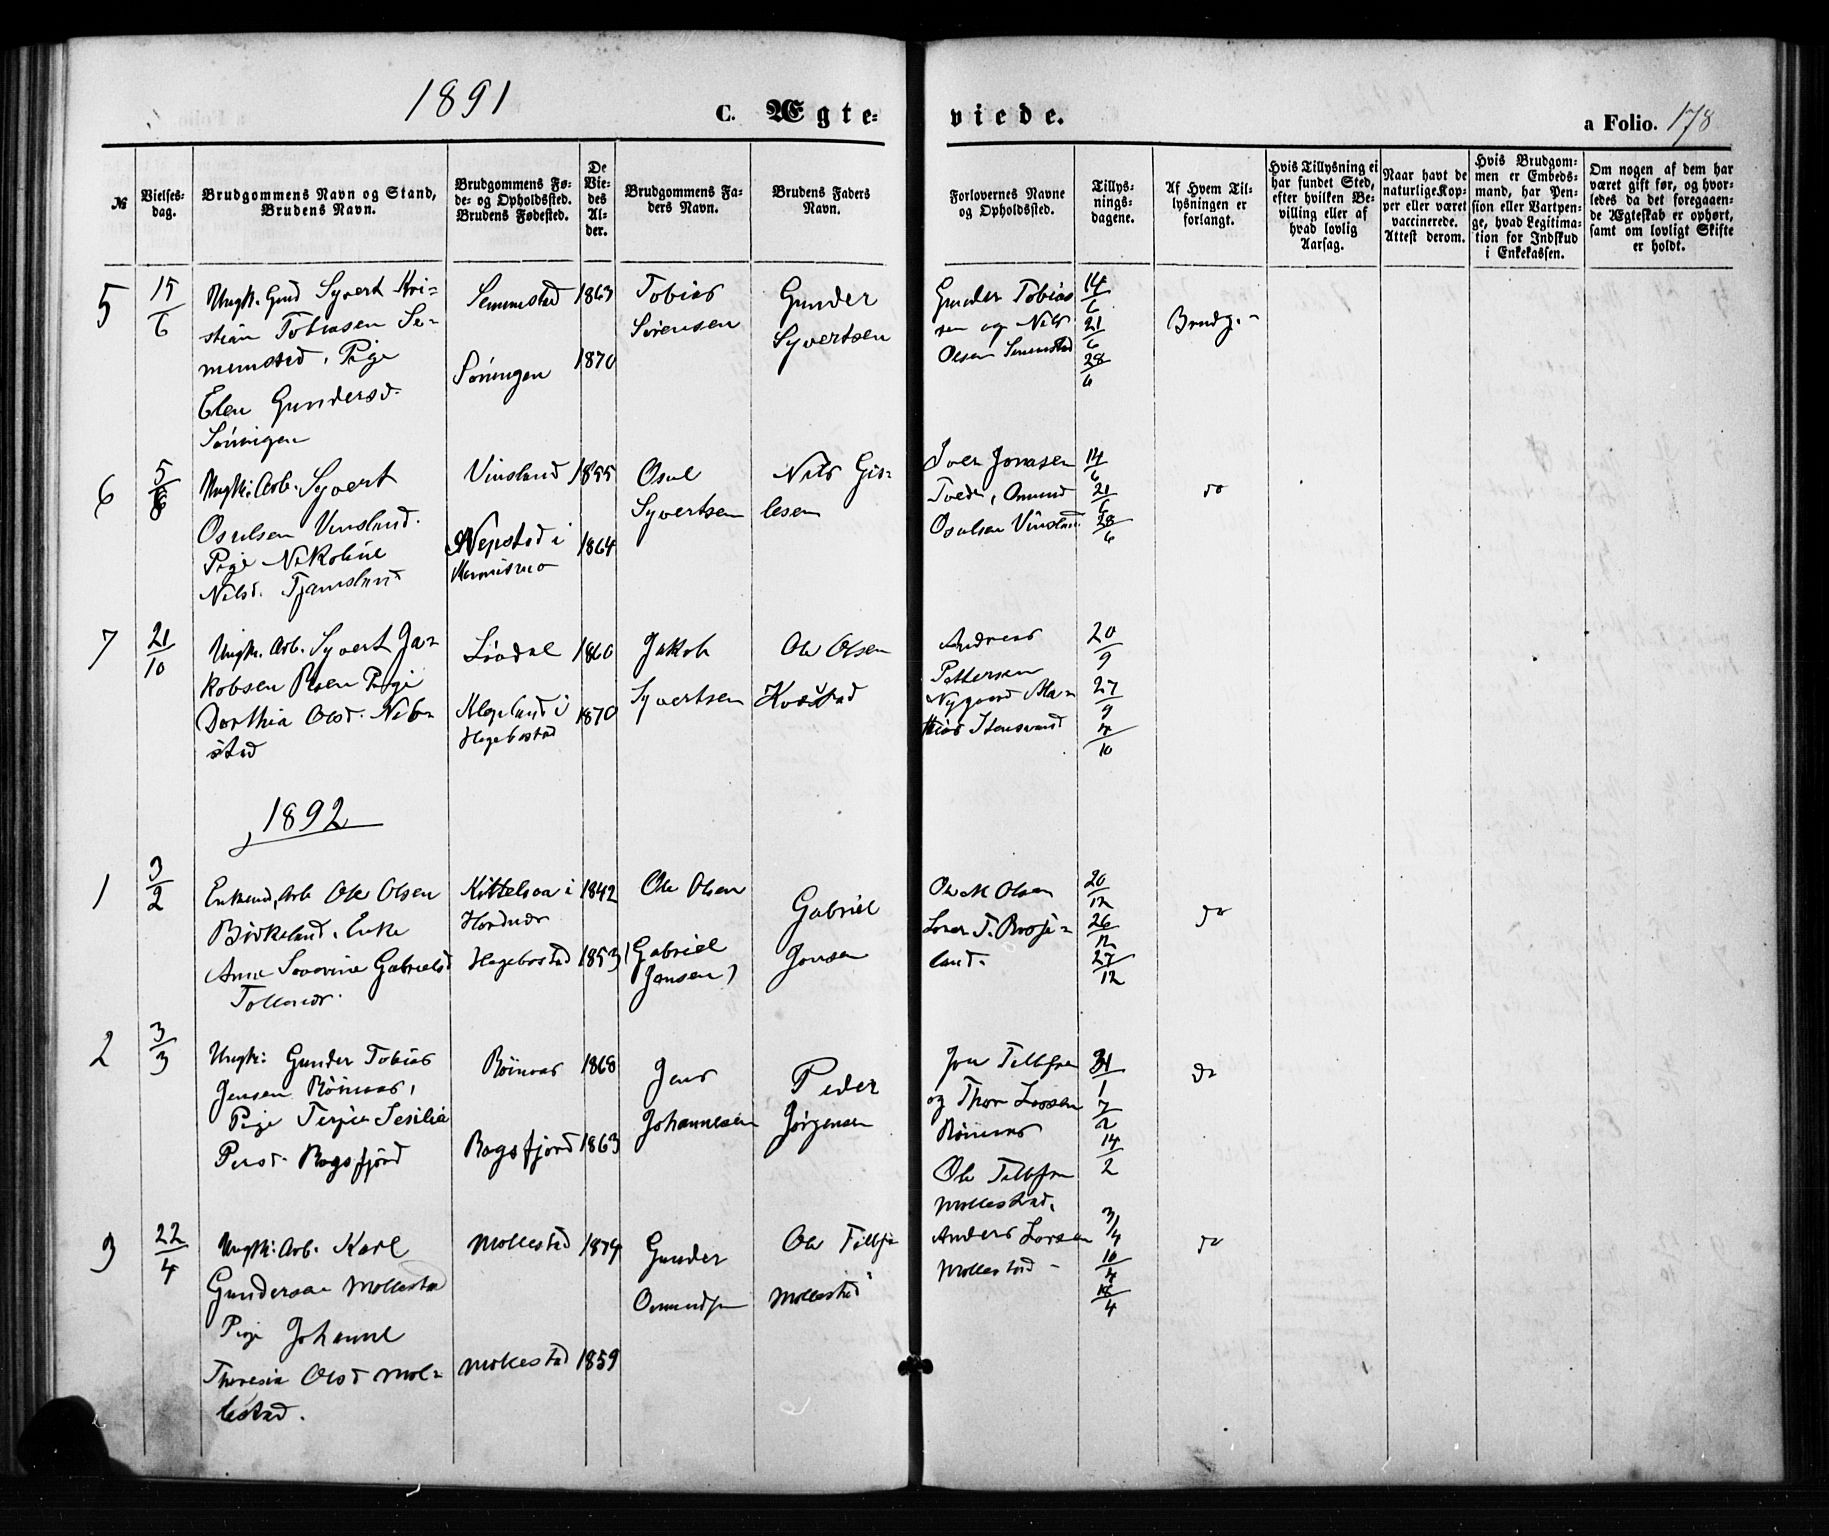 1891
C. Ægte-
viede.
a Folio. 178
№
Vielses-
dag.
Brudgommens Navn og Stand,
Brudens Navn.
Brudgommens Fø-
de- og Opholdssted.
Brudens Fødested.
De
Vie-
des
Al-
der.
Brudgommens Fa-
ders Navn.
Brudens Faders
Navn.
Forlovernes Navne
og Opholdssted.
Tillys-
nings-
dagene.
Af Hvem Til-
lysningen er
forlangt.
Hvis Tillysning ei
har fundet Sted,
efter hvilken Be-
villing eller af
hvad lovlig
Aarsag.
Naar havt de
naturlige Kop-
per eller været
vaccinerede.
Attest derom.
Hvis Brudgom-
men er Embeds-
mand, har Pen-
sion eller Vartpen-
ge, hvad Legitima-
tion for Indskud
i Enkekassen.
Om nogen af dem har
været gift før, og hvor-
ledes da det foregaaen-
de Ægteskab er ophørt,
samt om lovligt Skifte
er holdt.
5
15/6
Ungk. Gmd Syvert Kri-
stian Tobiasen Se-
memsted, Pige
Elen Gundersd.
Sömigen
Semmsted
Sömigen
1863
1870
Tobias
Sörensen
Gunder
Syvertsen
Gunder Tobias
sen og Nils
Olsen Semmstad
14/6
21/6
28/6
Brudg.-
6
5/6
Ungk. Arb. Syvert
Osulsen Vinsland.
Pige Nikoline
Nilsd. Tjamsland
Vinsland
Nepstad i
1855
1864
Osul
Syvertsen
Nils Gis-
lesen
Iver Jonasen
Tvede, Omund
Osulsen Vinsland
14/6
21/6
28/6
do
7
21/10
Ungk. Arb. Syvert Ja-
kobsen Rosen Pige
Dorthia Olsd. Neb-
stad
Lövdal
Hegeland i
Hegebostad
1860
1870
Jakob
Syvertsen
Ole Olsen
Kvistad
Andreas
Pettersen
Nygaard Ma-
thias Stensvand
20/9
27/9
4/10
1892
1
3/2
Enkemd, Arb Ole Olsen
Birkeland, Enke
Anne Severine Gabrielsd
Tolknes.
Kittelsaa i
Hordnes
Hegebostad
1842
1853
Ole Olsen
(Gabriel
Jonsen)
Gabriel
Jonsen
Ole M Olsen
Lover T. Brosje-
land.
20/12
26/12
27/12
do
2
3/3
Ungk: Gunder Tobias
Jensen Röinaas,
Pige Terjia Sesilia
Persd. Rogsfjörd
Röinaas
Rogsfjörd
1868
1863
Jens
Johannesen
Peder
Jörgensen
Jon Tellefsen
og Thor Larsen
Röinaas
31/1
7/2
14/2
do
3
22/4
Ungk: Arb. Karl
Gundersen Mollestad
Pige Johanne
Theresia Olsd Mol-
lestad.
Mollestad
Mollestad
1874
1859
Gunder
Omundsen
Ole Tellefsen
Mollestad
Ole Tellefsen
Mollestad,
Anders Larsen
Mollestad-
3/4
10/4
18/4
do